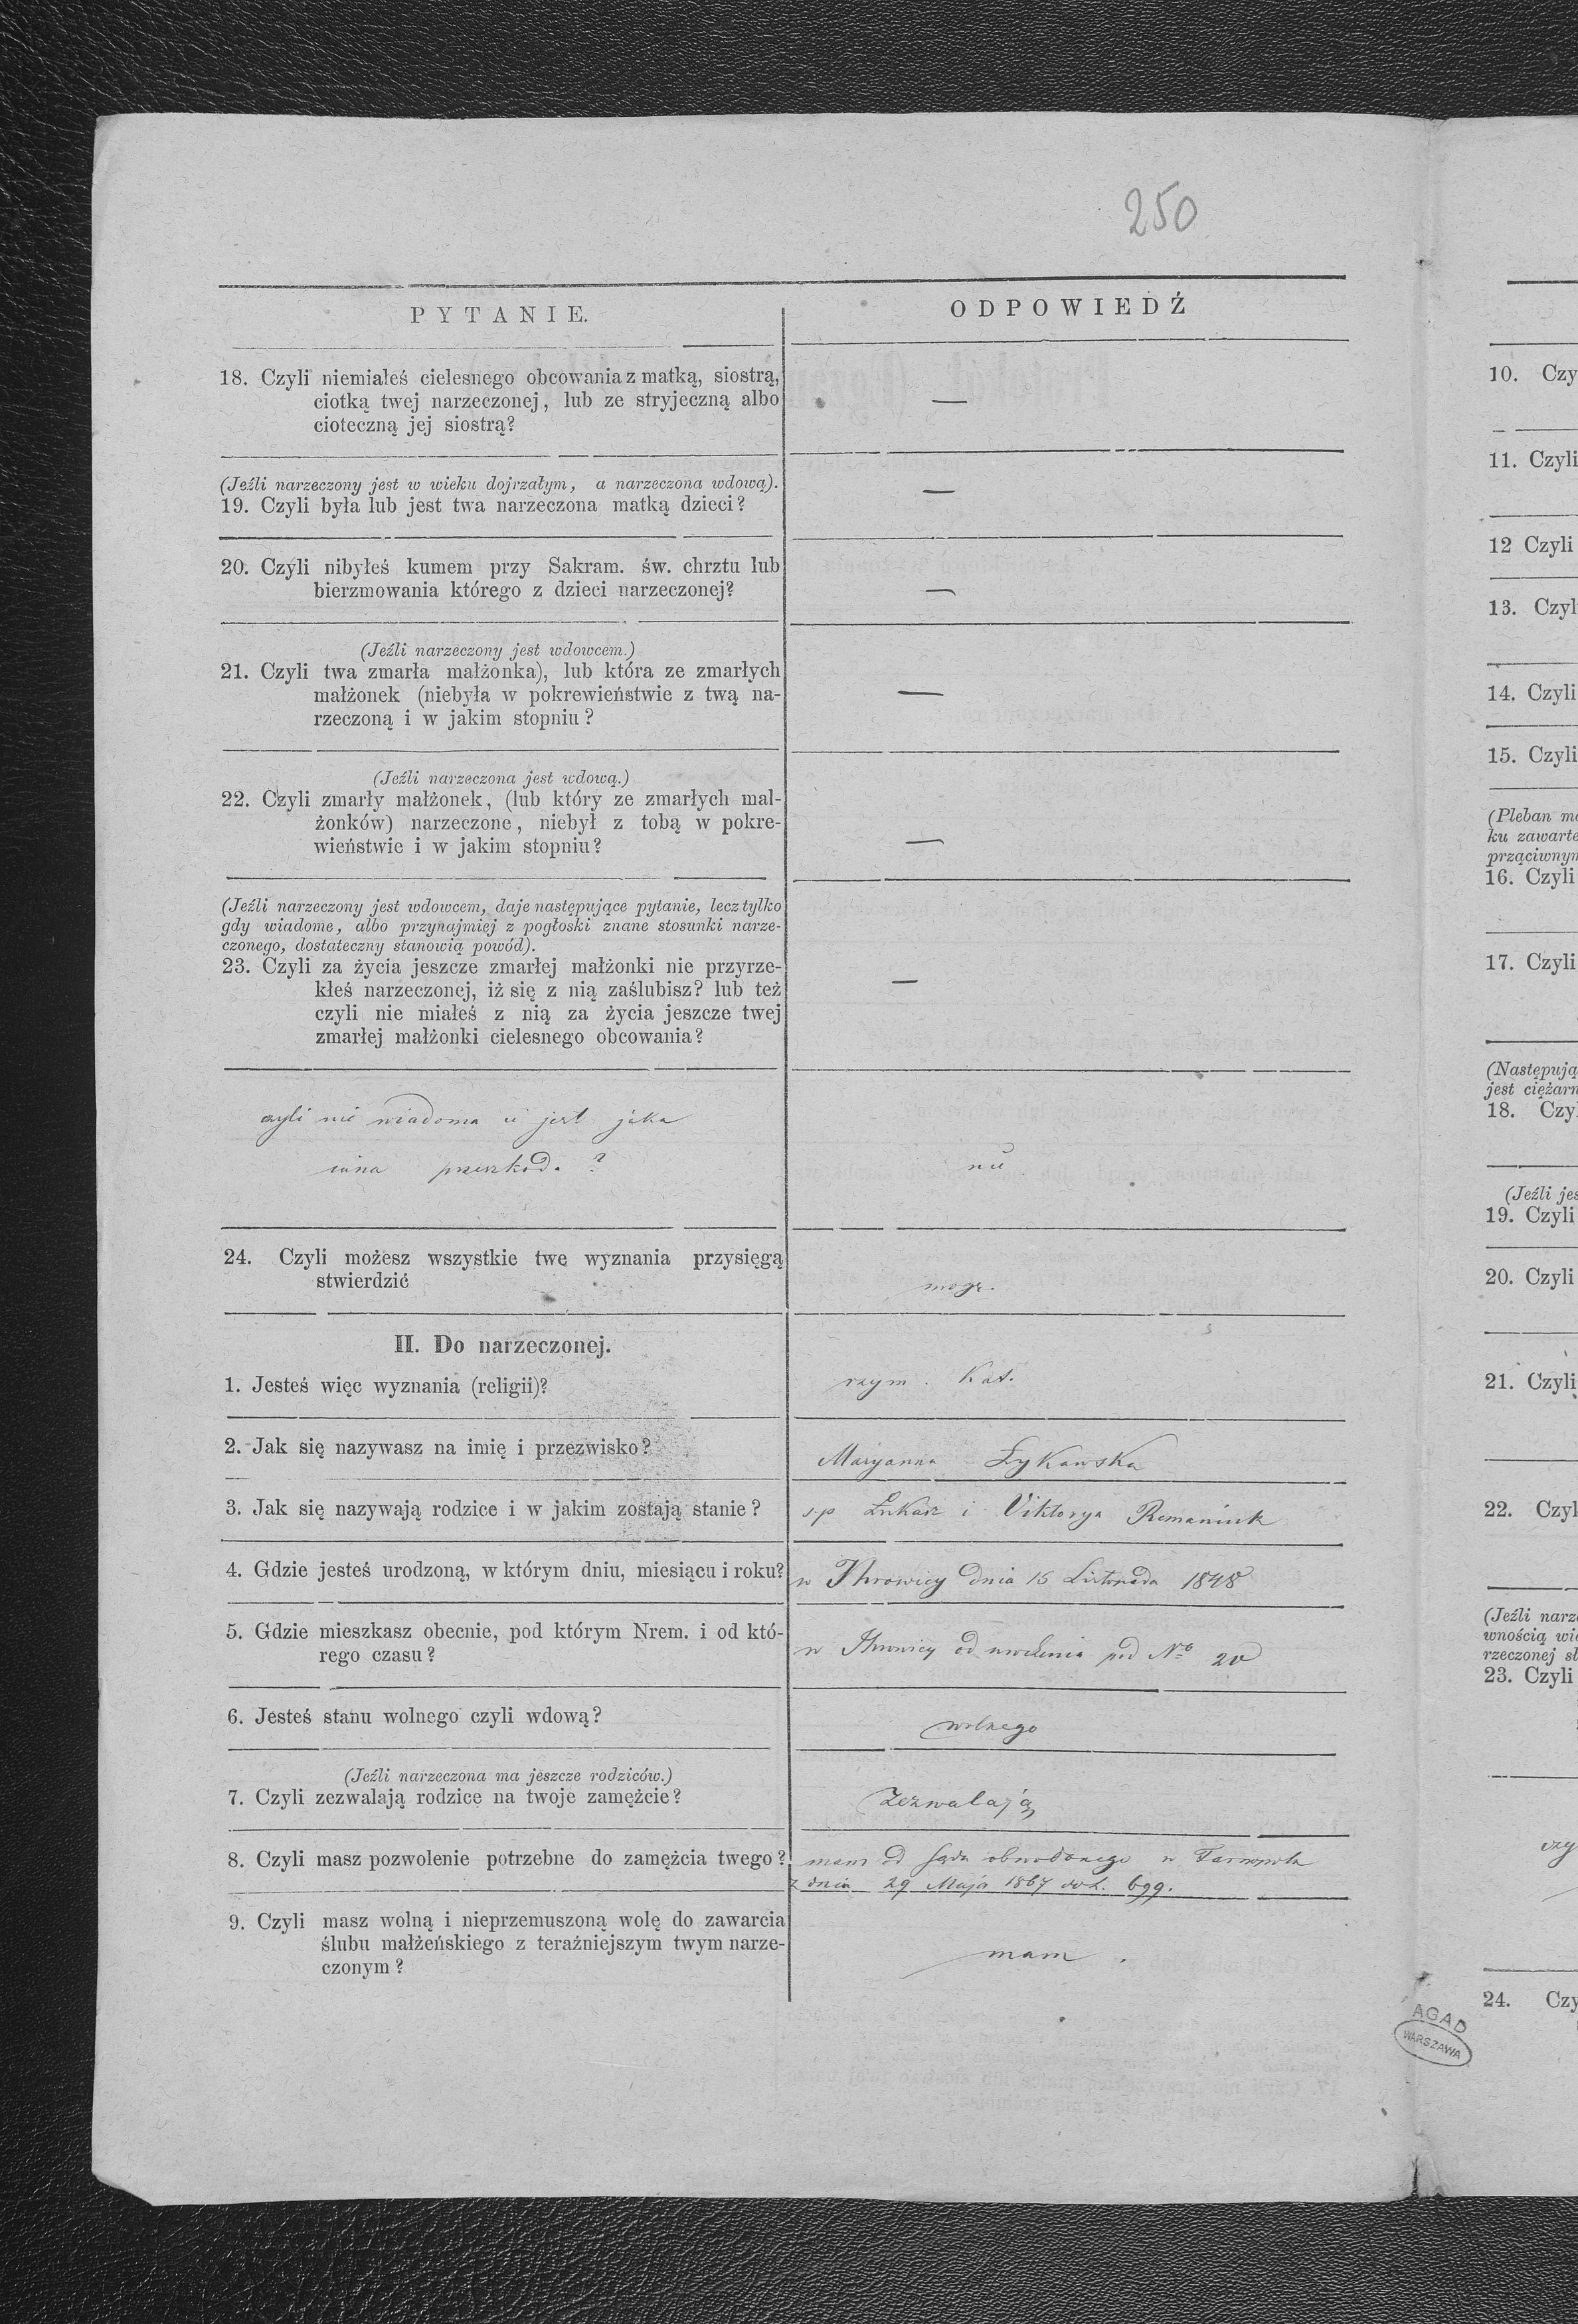 250
PYTANIE.
ODPOWIEDŹ
18. Czyli niemiałeś cielesnego obcowania z matką, siostrą,
ciotką twej narzeczonej, lub ze stryjeczną albo
cioteczną jej siostrą?
—
(Jeźli narzeczony jest w wieku dojrzałym, a narzeczona wdową).
19. Czyli była lub jest twa narzeczona matką dzieci?
—
20. Czyli nibyłeś kumem przy Sakram. św. chrztu lub
bierzmowania którego z dzieci narzeczonej?
—
(Jeźli narzeczony jest wdowcem.)
21. Czyli twa zmarła małżonka), lub która ze zmarłych
małżonek (niebyła w pokrewieństwie z twą na-
rzeczoną i w jakim stopniu?
—
(Jeźli narzeczona jest wdową.)
22. Czyli zmarły małżonek, (lub który ze zmarłych mal-
żonków) narzeczone, niebył z tobą w pokre-
wieństwie i w jakim stopniu?
—
(Jeźli narzeczony jest wdowcem, daje następujące pytanie, lecz tylko
gdy wiadome, albo przynajmiej z pogłoski znane stosunki narze-
czonego, dostateczny stanowią powód).
23. Czyli za życia jeszcze zmarłej małżonki nie przyrze-
kłeś narzeczonej, iż się z nią zaślubisz? lub też
czyli nie miałeś z nią za życia jeszcze twej
zmarłej małżonki cielesnego obcowania?
—
czyli nie wiadoma ci jest jaka
inna przeszkoda?
nie
24. Czyli możesz wszystkie twe wyznania przysięgą
stwierdzić
mogę.
II. Do narzeczonej.
1. Jesteś więc wyznania (religii)?
rzym. Kat.
2. Jak się nazywasz na imię i przezwisko?
Maryanna Łykawska
3. Jak się nazywają rodzice i w jakim zostają stanie?
s.p Łukasz i Viktorya Romaniuk
4. Gdzie jesteś urodzoną, w którym dniu, miesiącu i roku?
w Ihrowicy dnia 15 Listopada 1848
5. Gdzie mieszkasz obecnie, pod którym Nrem. i od któ-
rego czasu?
w Ihrowicy od urodzenia pod No 20
6. Jesteś stanu wolnego czyli wdową?
wolnego
(Jeźli narzeczona ma jeszcze rodziców.)
7. Czyli zezwalają rodzice na twoje zamężcie?
Zezwalają
8. Czyli masz pozwolenie potrzebne do zamężcia twego?
mam od sądu obwodowego w Tarnopolu
z dnia 29 Maja 1867 do L. 699.
9. Czyli masz wolną i nieprzemuszoną wolę do zawarcia
ślubu małżeńskiego z teraźniejszym twym narze-
czonym?
mam.
10. Czy
11. Czyli
12 Czyli
13. Czyl
14. Czyli
15. Czyli
(Pleban
ku zawarte
prząciwnym
16. Czyli
17. Czyli
(Następują
jest ciężarn
18. Czy
(Jeźli jes
19. Czyli
20. Czyli
21. Czyli
22. Czyl
(Jeźli narz
wnością
rzeczonej
23. Czyli
czy
24. Czy
AGAD
WARSZAWA